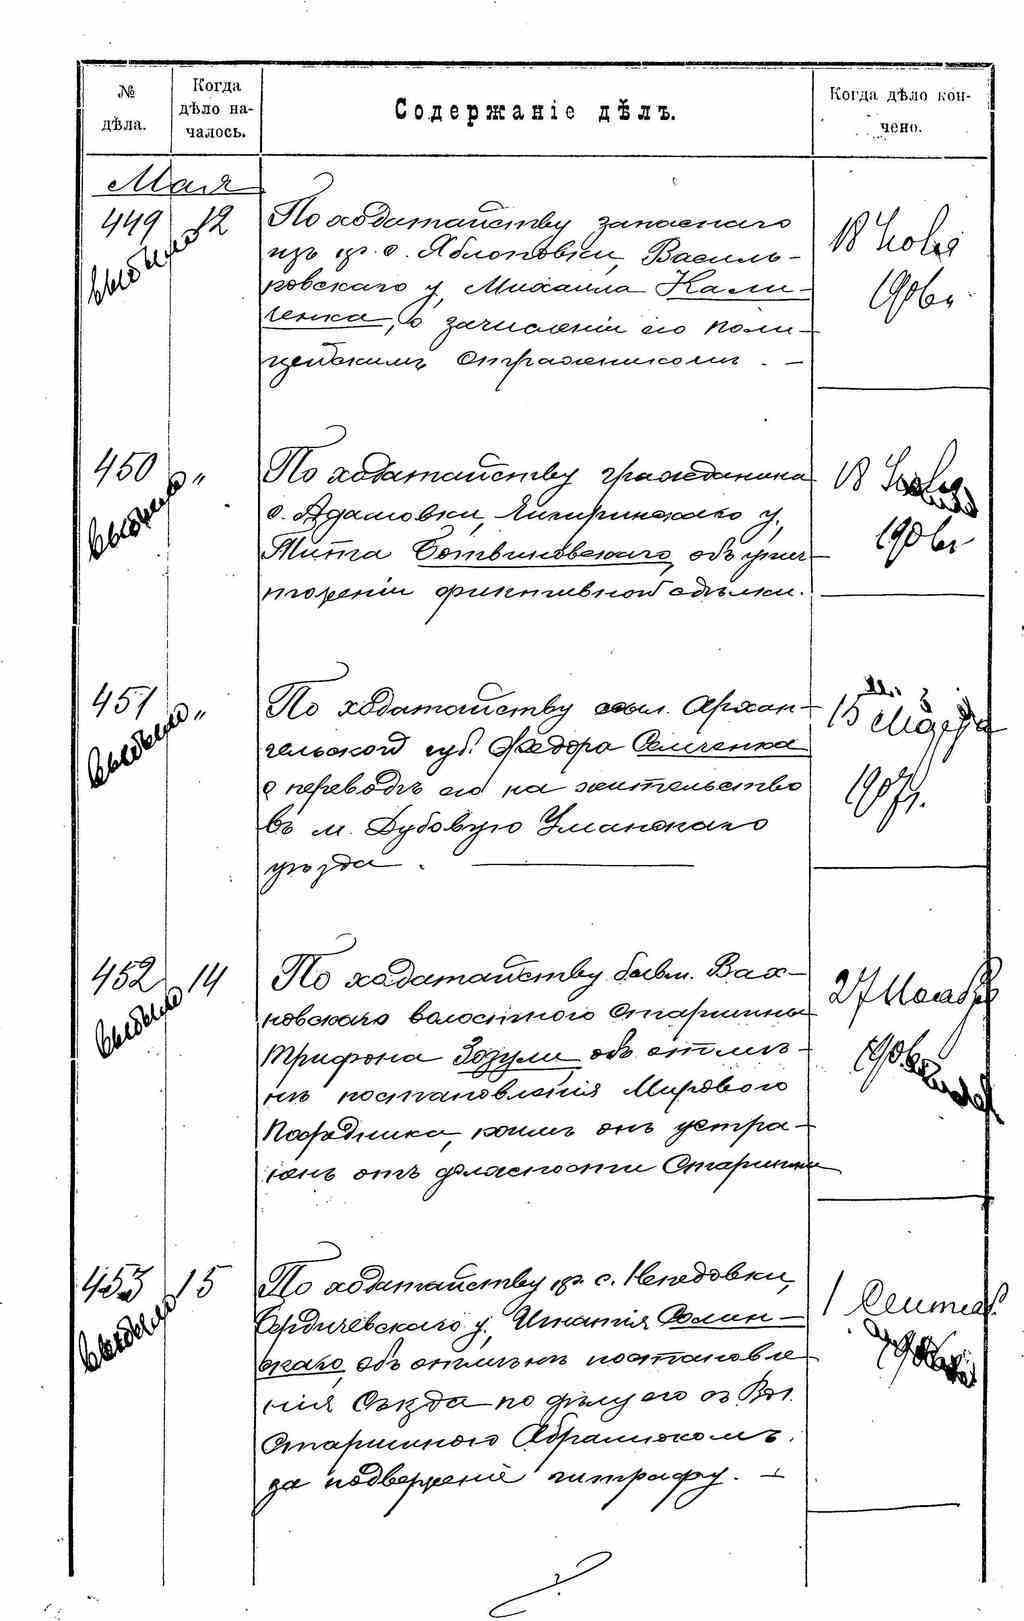 № дѣла.
Когда дѣло началось.
Содержаніе дѣлъ.
Когда дѣло кончено.
Мая
449 12
выбыло
По ходатайству запаснаго
изъ кр. с. Яблоновки, Василь-
ковскаго у, Михаила Кали-
ченка, о зачисленіи его поли-
цейскимъ стражникомъ. —
18 Іюня
1906 г
450 "
выбыло
По ходатайству гражданина
с. Адамовки, Чигиринскаго у,
Тита Ботвиновскаго, объ унич-
тоженіи фиктивной сдѣлки.
18
1906 г
451 "
выбыло
По ходатайству ссыл. Архан-
гельской губ. Федора Семченка
о переводѣ его на жительство
въ м. Дубовую Уманскаго
уѣзда.
15 Марта
1907 г.
452 14
выбыло
По ходатайству бывш. Вах-
новскаго волостного Старшины
Трифона Зозули, объ отмѣ-
нѣ постановленія Мирового
Посредника, коимъ онъ устра-
ненъ отъ должности Старшины
27 Ноября
190
453 15
выбыло
По ходатайству кр. с. Непедовки,
Бердичевскаго у, Игнатія Солин-
скаго, объ отмѣнѣ постановле-
нія Съѣзда по дѣлу его съ Вол.
Старшиною Абрамюкомъ.
за подверженіе штрафу. —
1 Сентяб.